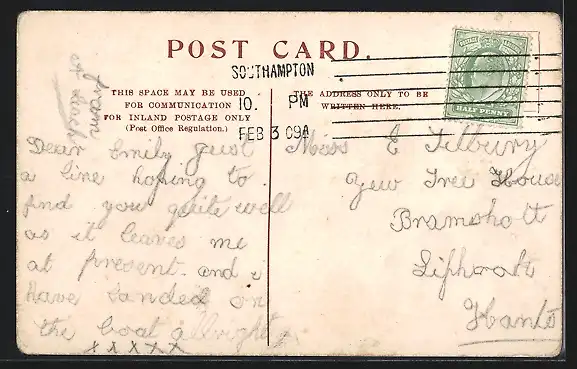 POST CARD.
SOUTHAMPTON
10. PM
FEB 3 09A
THIS SPACE MAY BE USED
FOR COMMUNICATION
FOR INLAND POSTAGE ONLY
(Post Office Regulation.)
THE ADDRESS ONLY TO BE
WRITTEN HERE.
HALF PENNY
from
Dear Emily just
a line hoping to
find you quite well
as it leaves me
at present. and i
have landed on
the boat allright
x x x x x
Miss E Tilbury
Yew Tree House
Bramshott
Liphook
Hants